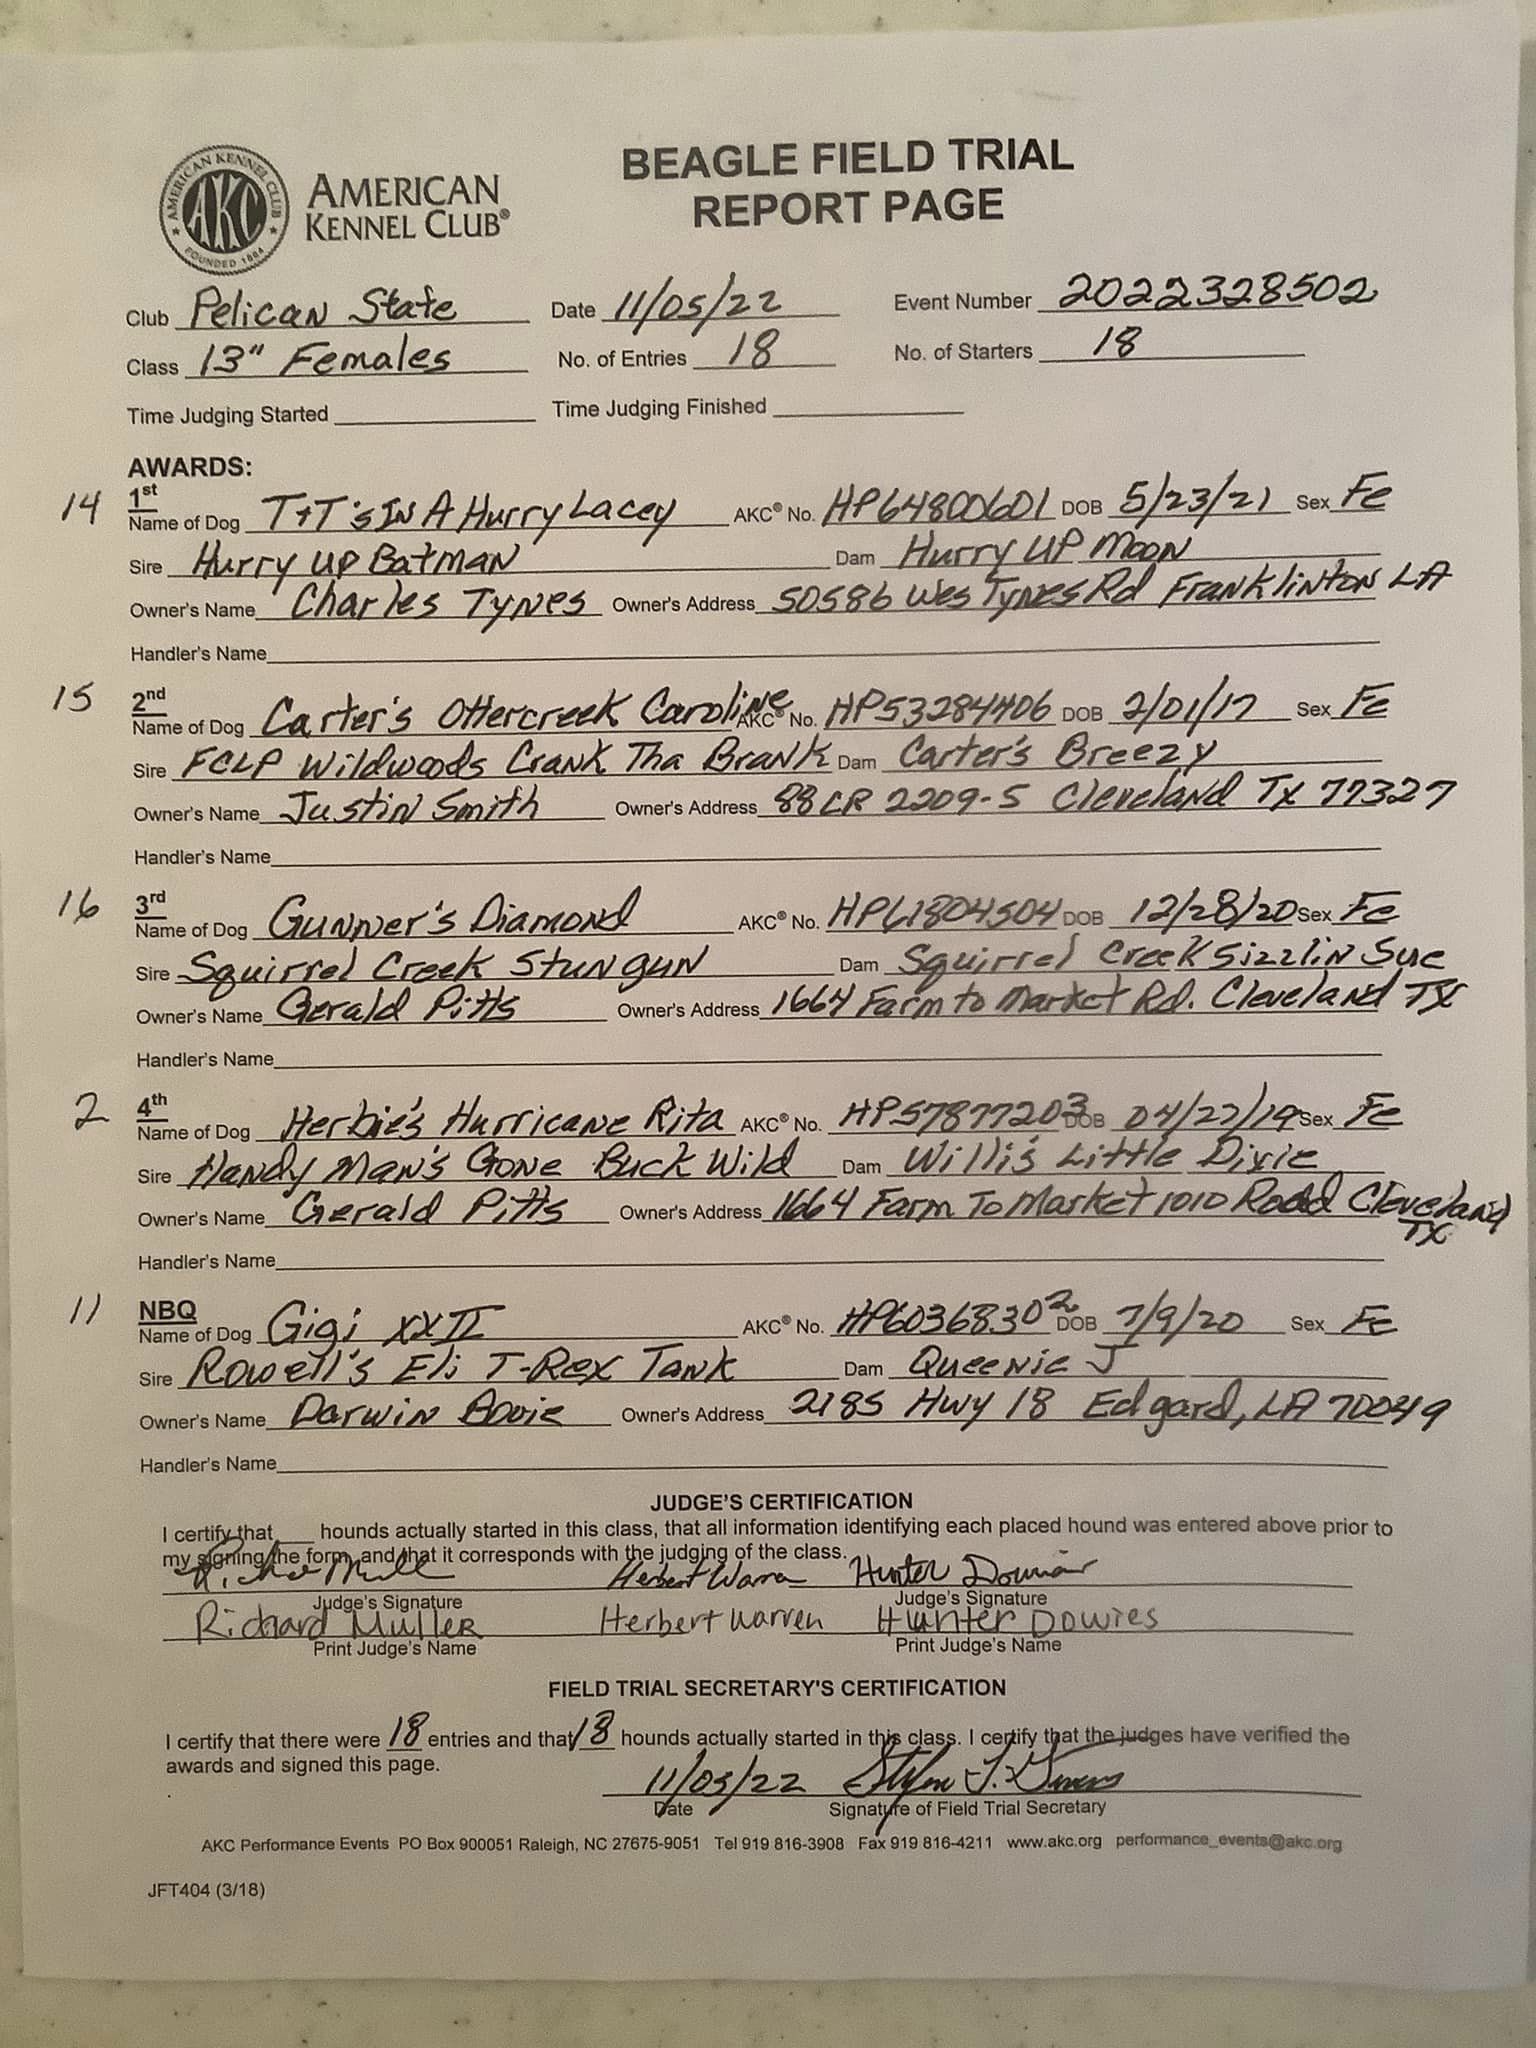 BEAGLE FIELD TRIAL
REPORT PAGE
AMERICAN KENNEL CLUB
AKC
FOUNDED 1884
AMERICAN
KENNEL CLUB®
Club Pelican State Date 11/05/22 Event Number 2022328502
Class 13" Females No. of Entries 18 No. of Starters 18
Time Judging Started Time Judging Finished
AWARDS:
14 1st
Name of Dog T+T's IN A Hurry Lacey AKC® No. HP64800601 DOB 5/23/21 Sex Fe
Sire Hurry UP Batman Dam Hurry UP Moon
Owner's Name Charles Tynes Owner's Address 50586 Wes Tynes Rd Franklinton LA
Handler's Name
15 2nd
Name of Dog Carter's Ottercreek Caroline AKC® No. HP53284406 DOB 2/01/17 Sex Fe
Sire FCLP Wildwoods Crank Tha Brank Dam Carter's Breezy
Owner's Name Justin Smith Owner's Address 88 CR 2209-S Cleveland Tx 77327
Handler's Name
16 3rd
Name of Dog Gunner's Diamond AKC® No. HP61804504 DOB 12/28/20 Sex Fe
Sire Squirrel Creek Stun gun Dam Squirrel Creek Sizzlin Sue
Owner's Name Gerald Pitts Owner's Address 1664 Farm to Market Rd. Cleveland TX
Handler's Name
2 4th
Name of Dog Herbie's Hurricane Rita AKC® No. HP57877203 DOB 04/27/19 Sex Fe
Sire Handy Man's Gone Buck Wild Dam Willis Little Dixie
Owner's Name Gerald Pitts Owner's Address 1664 Farm To Market 1010 Road Cleveland
TX
Handler's Name
11 NBQ
Name of Dog Gigi XXII AKC® No. HP60368302 DOB 7/9/20 Sex Fe
Sire Rowell's Eli T-Rex Tank Dam Queenie J
Owner's Name Darwin Owner's Address 2185 Hwy 18 Edgard, LA 70049
Handler's Name
JUDGE'S CERTIFICATION
I certify that hounds actually started in this class, that all information identifying each placed hound was entered above prior to
my signing the form, and that it corresponds with the judging of the class.
Herbert Warren Hunter
Judge's Signature Judge's Signature
Richard Muller Herbert Warren Hunter Dowies
Print Judge's Name Print Judge's Name
FIELD TRIAL SECRETARY'S CERTIFICATION
I certify that there were 18 entries and that 18 hounds actually started in this class. I certify that the judges have verified the
awards and signed this page.
11/05/22
Date Signature of Field Trial Secretary
AKC Performance Events PO Box 900051 Raleigh, NC 27675-9051 Tel 919 816-3908 Fax 919 816-4211 www.akc.org performance_events@akc.org
JFT404 (3/18)